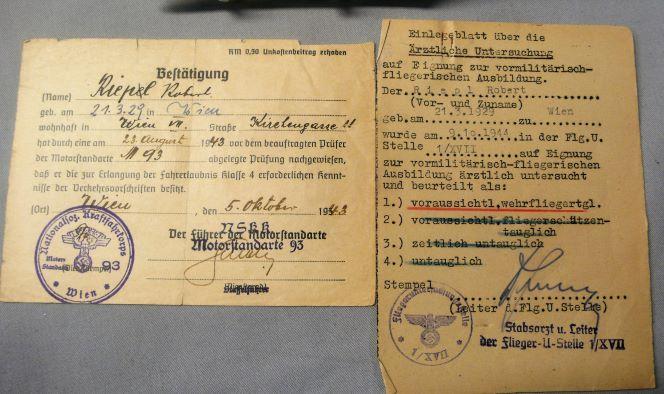 RM 0,50 Unkostenbeitrag erhoben
Bestätigung
(Name) Riepl Robert
geb. am 21.3.29 in Wien
wohnhaft in Wien VII. Straße Kirchengasse
hat durch eine am 23. August 1943 vor dem beauftragten Prüfer
der Motorstandarte M 93 abgelegte Prüfung nachgewiesen,
daß er die zur Erlangung der Fahrerlaubnis Klasse 4 erforderlichen Kennt-
nisse der Verkehrsvorschriften besitzt.
(Ort) Wien, den 5. Oktober 1943
NSKK
Der Führer der Motorstandarte
Motorstandarte 93
Nationalsoz. Kraftfahrkorps
Motor-
Standarte 93
* Wien *
Einlegeblatt über die
Ärztliche Untersuchung
auf Eignung zur vormilitärisch-
fliegerischen Ausbildung.
Der Riepl Robert
(Vor- und Zuname)
geb.am 21.3.1929 zu Wien
wurde am 9.10.1944 in der Flg.U.
Stelle 1/XVII auf Eignung
zur vormilitärisch-fliegerischen
Ausbildung ärztlich untersucht
und beurteilt als:
1.) voraussichtl.wehrfliegertgl.
2.) voraussichtl.fliegerschützen-
tauglich
3.) zeitlich untauglich
4.) untauglich
Stempel
(Leiter d.Flg.U.Stelle)
Stabsarzt u. Leiter
der Flieger-U-Stelle 1/XVII
Fliegeruntersuchungsstelle
1/XVII